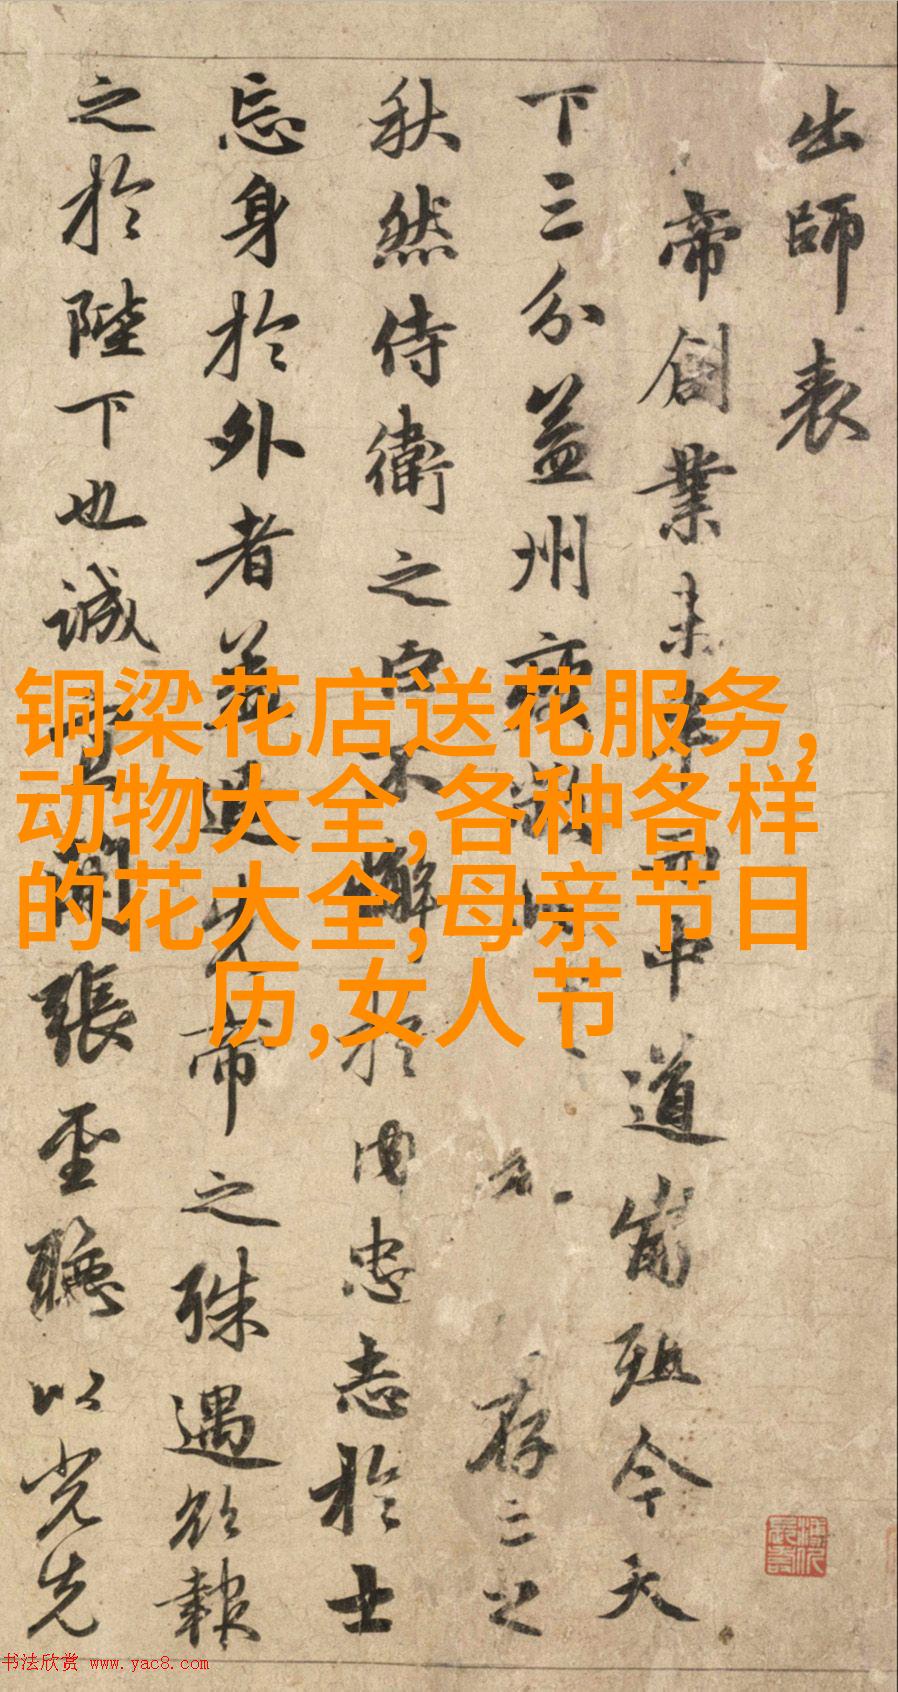 出師表
帝創業未半而中道崩殂今天
下三分益州疲弊存亡之
秋然侍衛之臣不懈於内忠志於士
忘身於外者蓋追先帝之殊遇欲報
之於陛下也誠宜開張聖聽以光先
铜梁花店送花服务,
动物大全,各种各样
的花大全,母亲节日
历,女人节
书法欣赏 www.yac8.com